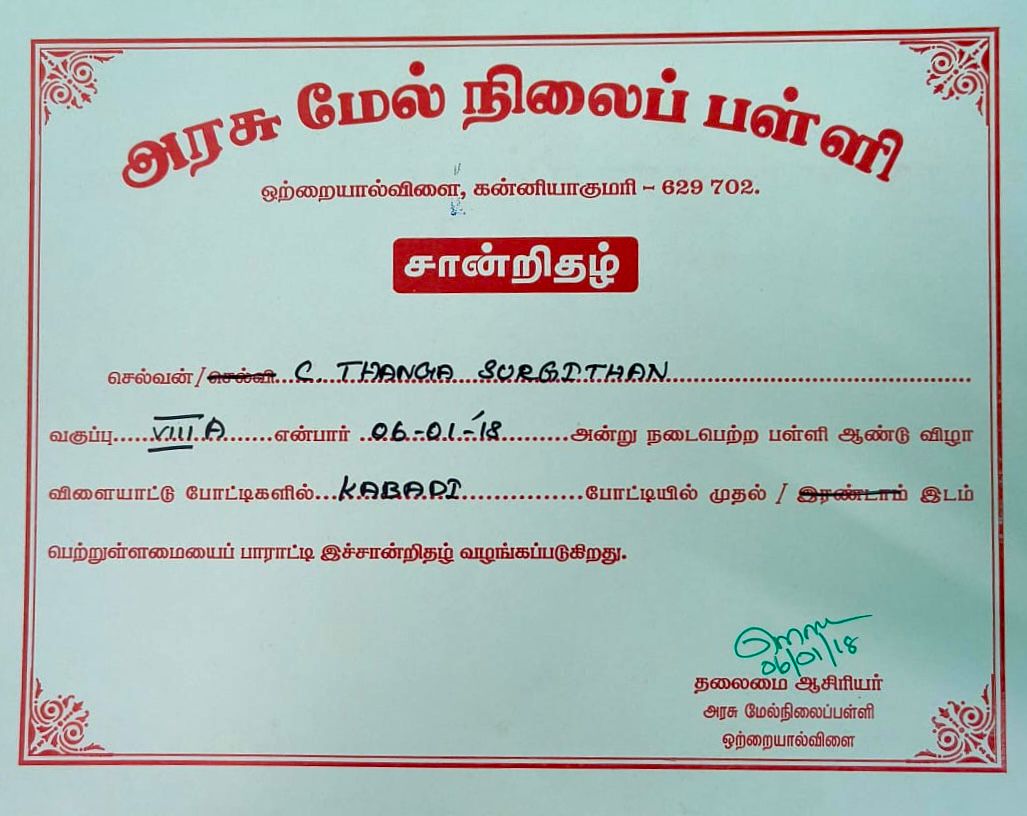 அரசு மேல் நிலைப் பள்ளி
ஒற்றையால்விளை, கன்னியாகுமரி - 629 702.
சான்றிதழ்
செல்வன்/செல்வி C. THANGA SURGITHAN
வகுப்பு VIII A என்பார் 06-01-'18 அன்று நடைபெற்ற பள்ளி ஆண்டு விழா
விளையாட்டு போட்டிகளில் KABADI போட்டியில் முதல் / இரண்டாம் இடம்
பெற்றுள்ளமையைப் பாராட்டி இச்சான்றிதழ் வழங்கப்படுகிறது.
06/01/18
தலைமை ஆசிரியர்
அரசு மேல்நிலைப்பள்ளி
ஒற்றையால்விளை